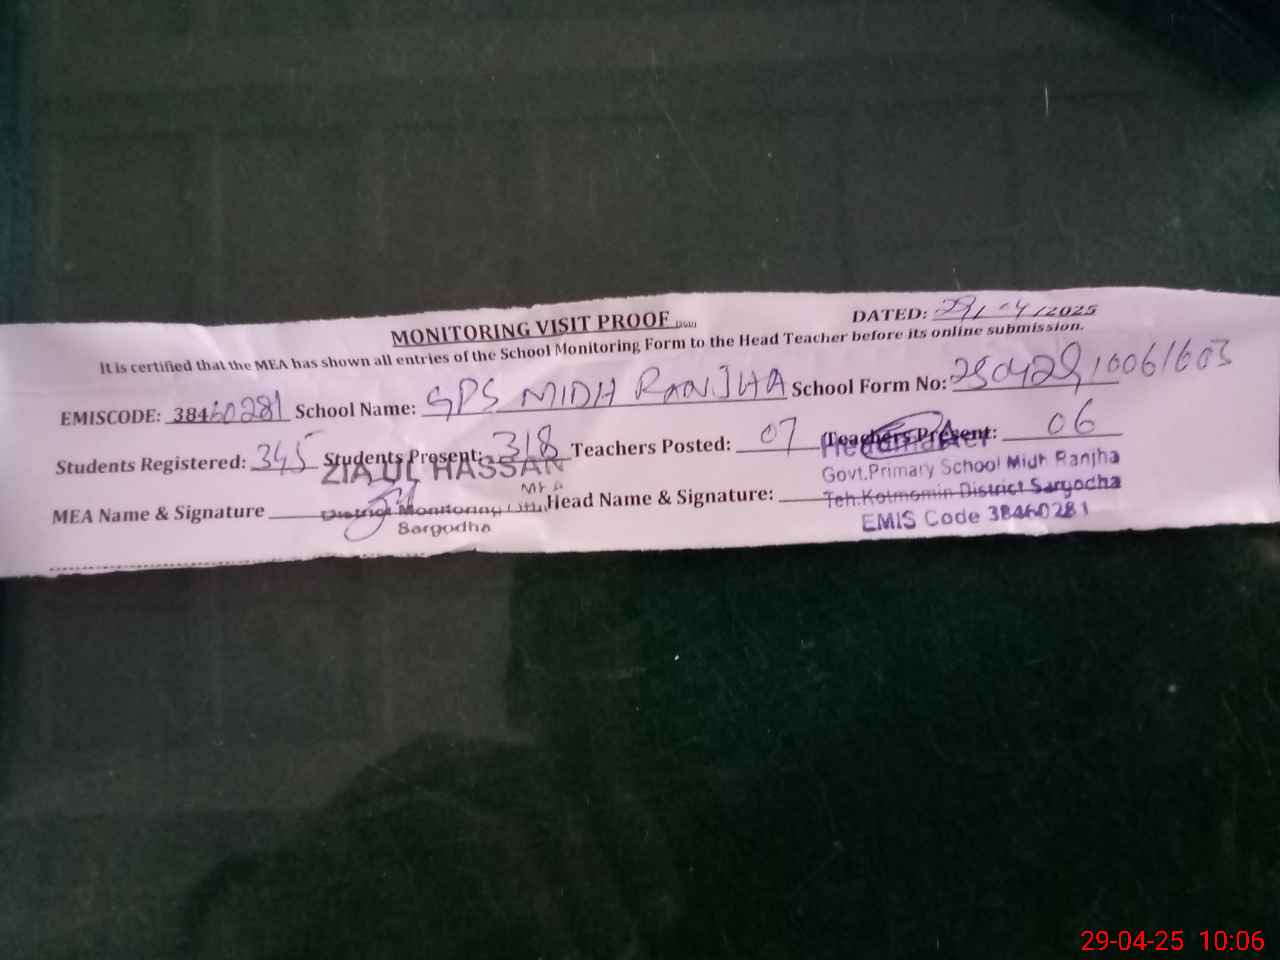 MONITORING VISIT PROOF
DATED: 29/04/2025
It is certified that the MEA has shown all entries of the School Monitoring Form to the Head Teacher before its online submission.
EMISCODE: 38460281 School Name: GPS MIDH RANJHA School Form No:
Students Registered: 345 Students Present: 318 Teachers Posted: 07 Teachers Present: 06
ZIA UL HASSAN
MEA
MEA Name & Signature
District Monitoring
Sargodha
Head Name & Signature:
Headmaster
Govt.Primary School Midh Ranjha
Teh.Kotmomin District Sargodha
EMIS Code 38460281
29-04-25 10:06